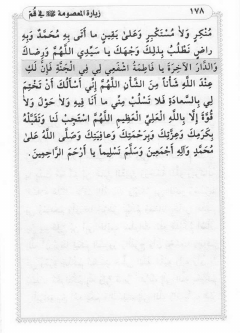 ١٧٨ زيارة المعصومة في قم
مُنْكِرٍ وَلاَ مُسْتَكْبِرٍ وَعَلىٰ يَقِينِ ما أَتىٰ بِهِ مُحَمَّدٌ وَبِهِ
راضٍ نَطْلُبُ بِذٰلِكَ وَجْهَكَ يا سَيِّدِي اللَّهُمَّ وَرِضاكَ
وَالدّارَ الآخِرَةَ يا فاطِمَةُ اشْفَعِي لِي فِي الْجَنَّةِ فَإِنَّ لَكِ
عِنْدَ اللَّهِ شَأْناً مِنَ الشَّأْنِ اللَّهُمَّ إِنِّي أَسْأَلُكَ أَنْ تَخْتِمَ
لِي بِالسَّعادَةِ فَلا تَسْلُبْ مِنِّي ما أَنَا فِيهِ وَلاَ حَوْلَ وَلاَ
قُوَّةَ إِلاَّ بِاللَّهِ الْعَلِيِّ الْعَظِيمِ اللَّهُمَّ اسْتَجِبْ لَنا وَتَقَبَّلْهُ
بِكَرَمِكَ وَعِزَّتِكَ وَبِرَحْمَتِكَ وَعافِيَتِكَ وَصَلَّى اللَّهُ عَلىٰ
مُحَمَّدٍ وَآلِهِ أَجْمَعِينَ وَسَلَّمَ تَسْلِيماً يا أَرْحَمَ الرَّاحِمِينَ.